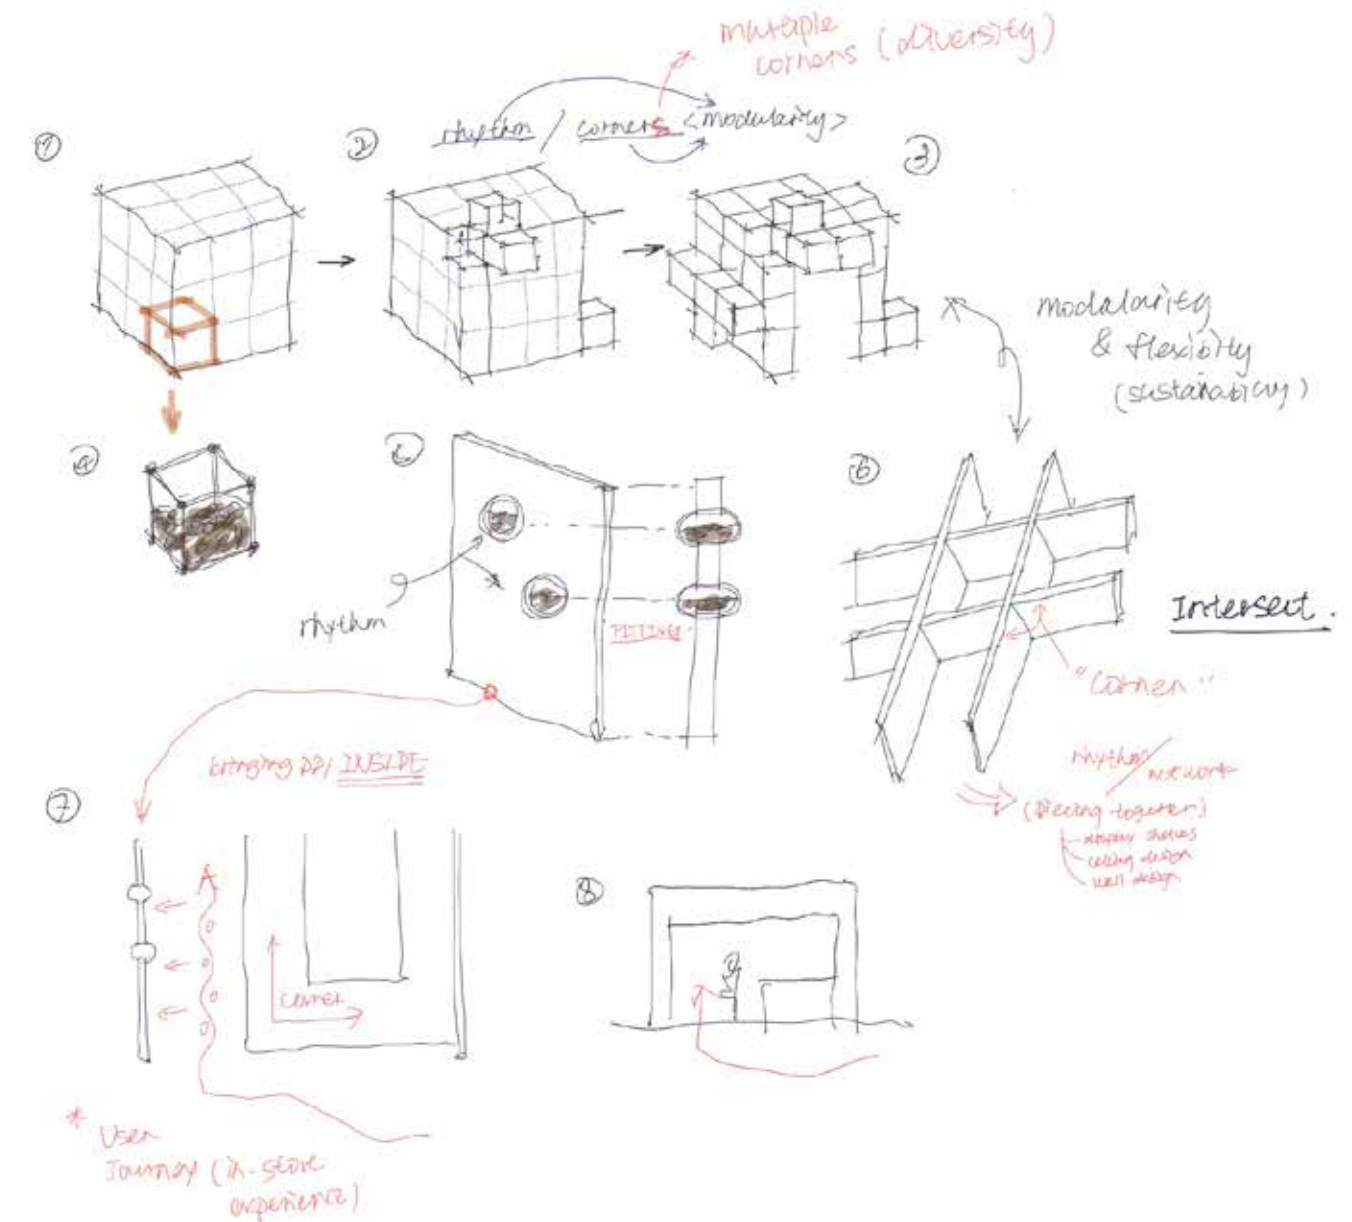 multiple
corners (diversity)
rhythm / corners <modularity>
1
2
3
modularity
& flexibity
(sustainability)
4
5
6
rhythm
Intersect.
"corner"
rhythm / network
(piecing together)
display shelves
ceiling design
wall design
bringing INSIDE
7
8
corner
* User
Journey (in-store
experience)